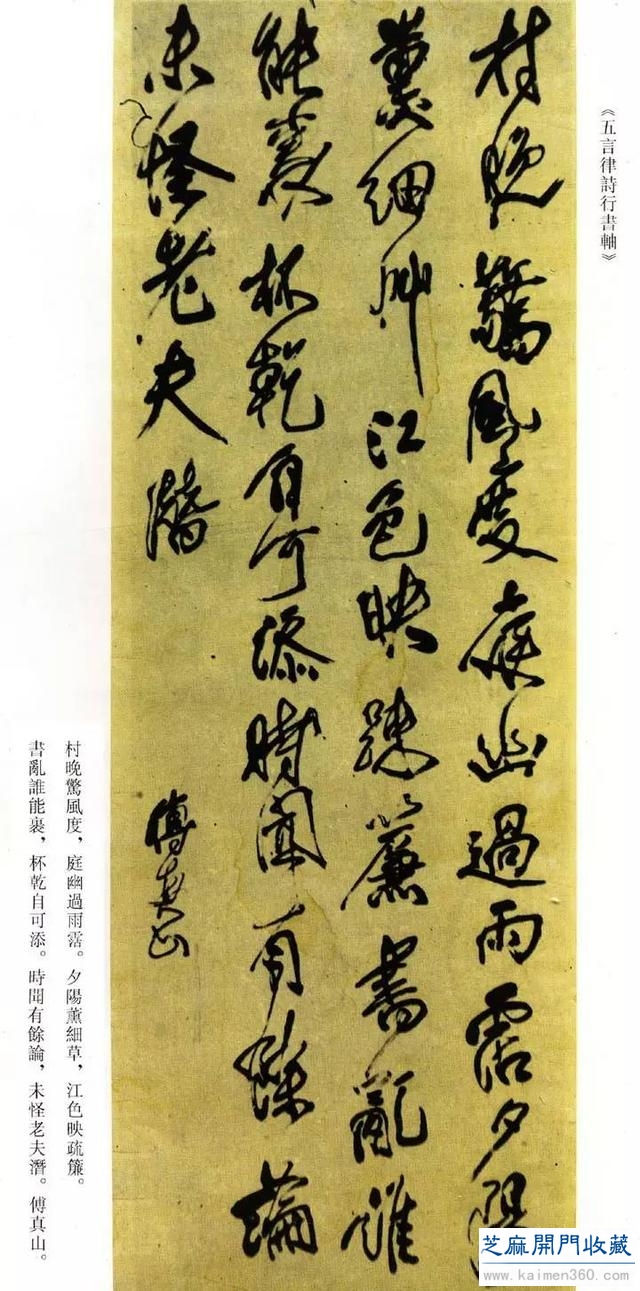 《五言律詩行書軸》
村晚驚風度庭幽過雨霑夕陽
薰細艸江色映疎簾書亂誰
能裹杯乾自可添時聞有餘論
未怪老夫潛
傅真山
村晚驚風度，庭幽過雨霑。夕陽薰細草，江色映疏簾。
書亂誰能裹，杯乾自可添。時聞有餘論，未怪老夫潛。傅真山。
芝麻開門收藏
www.kaimen360.com